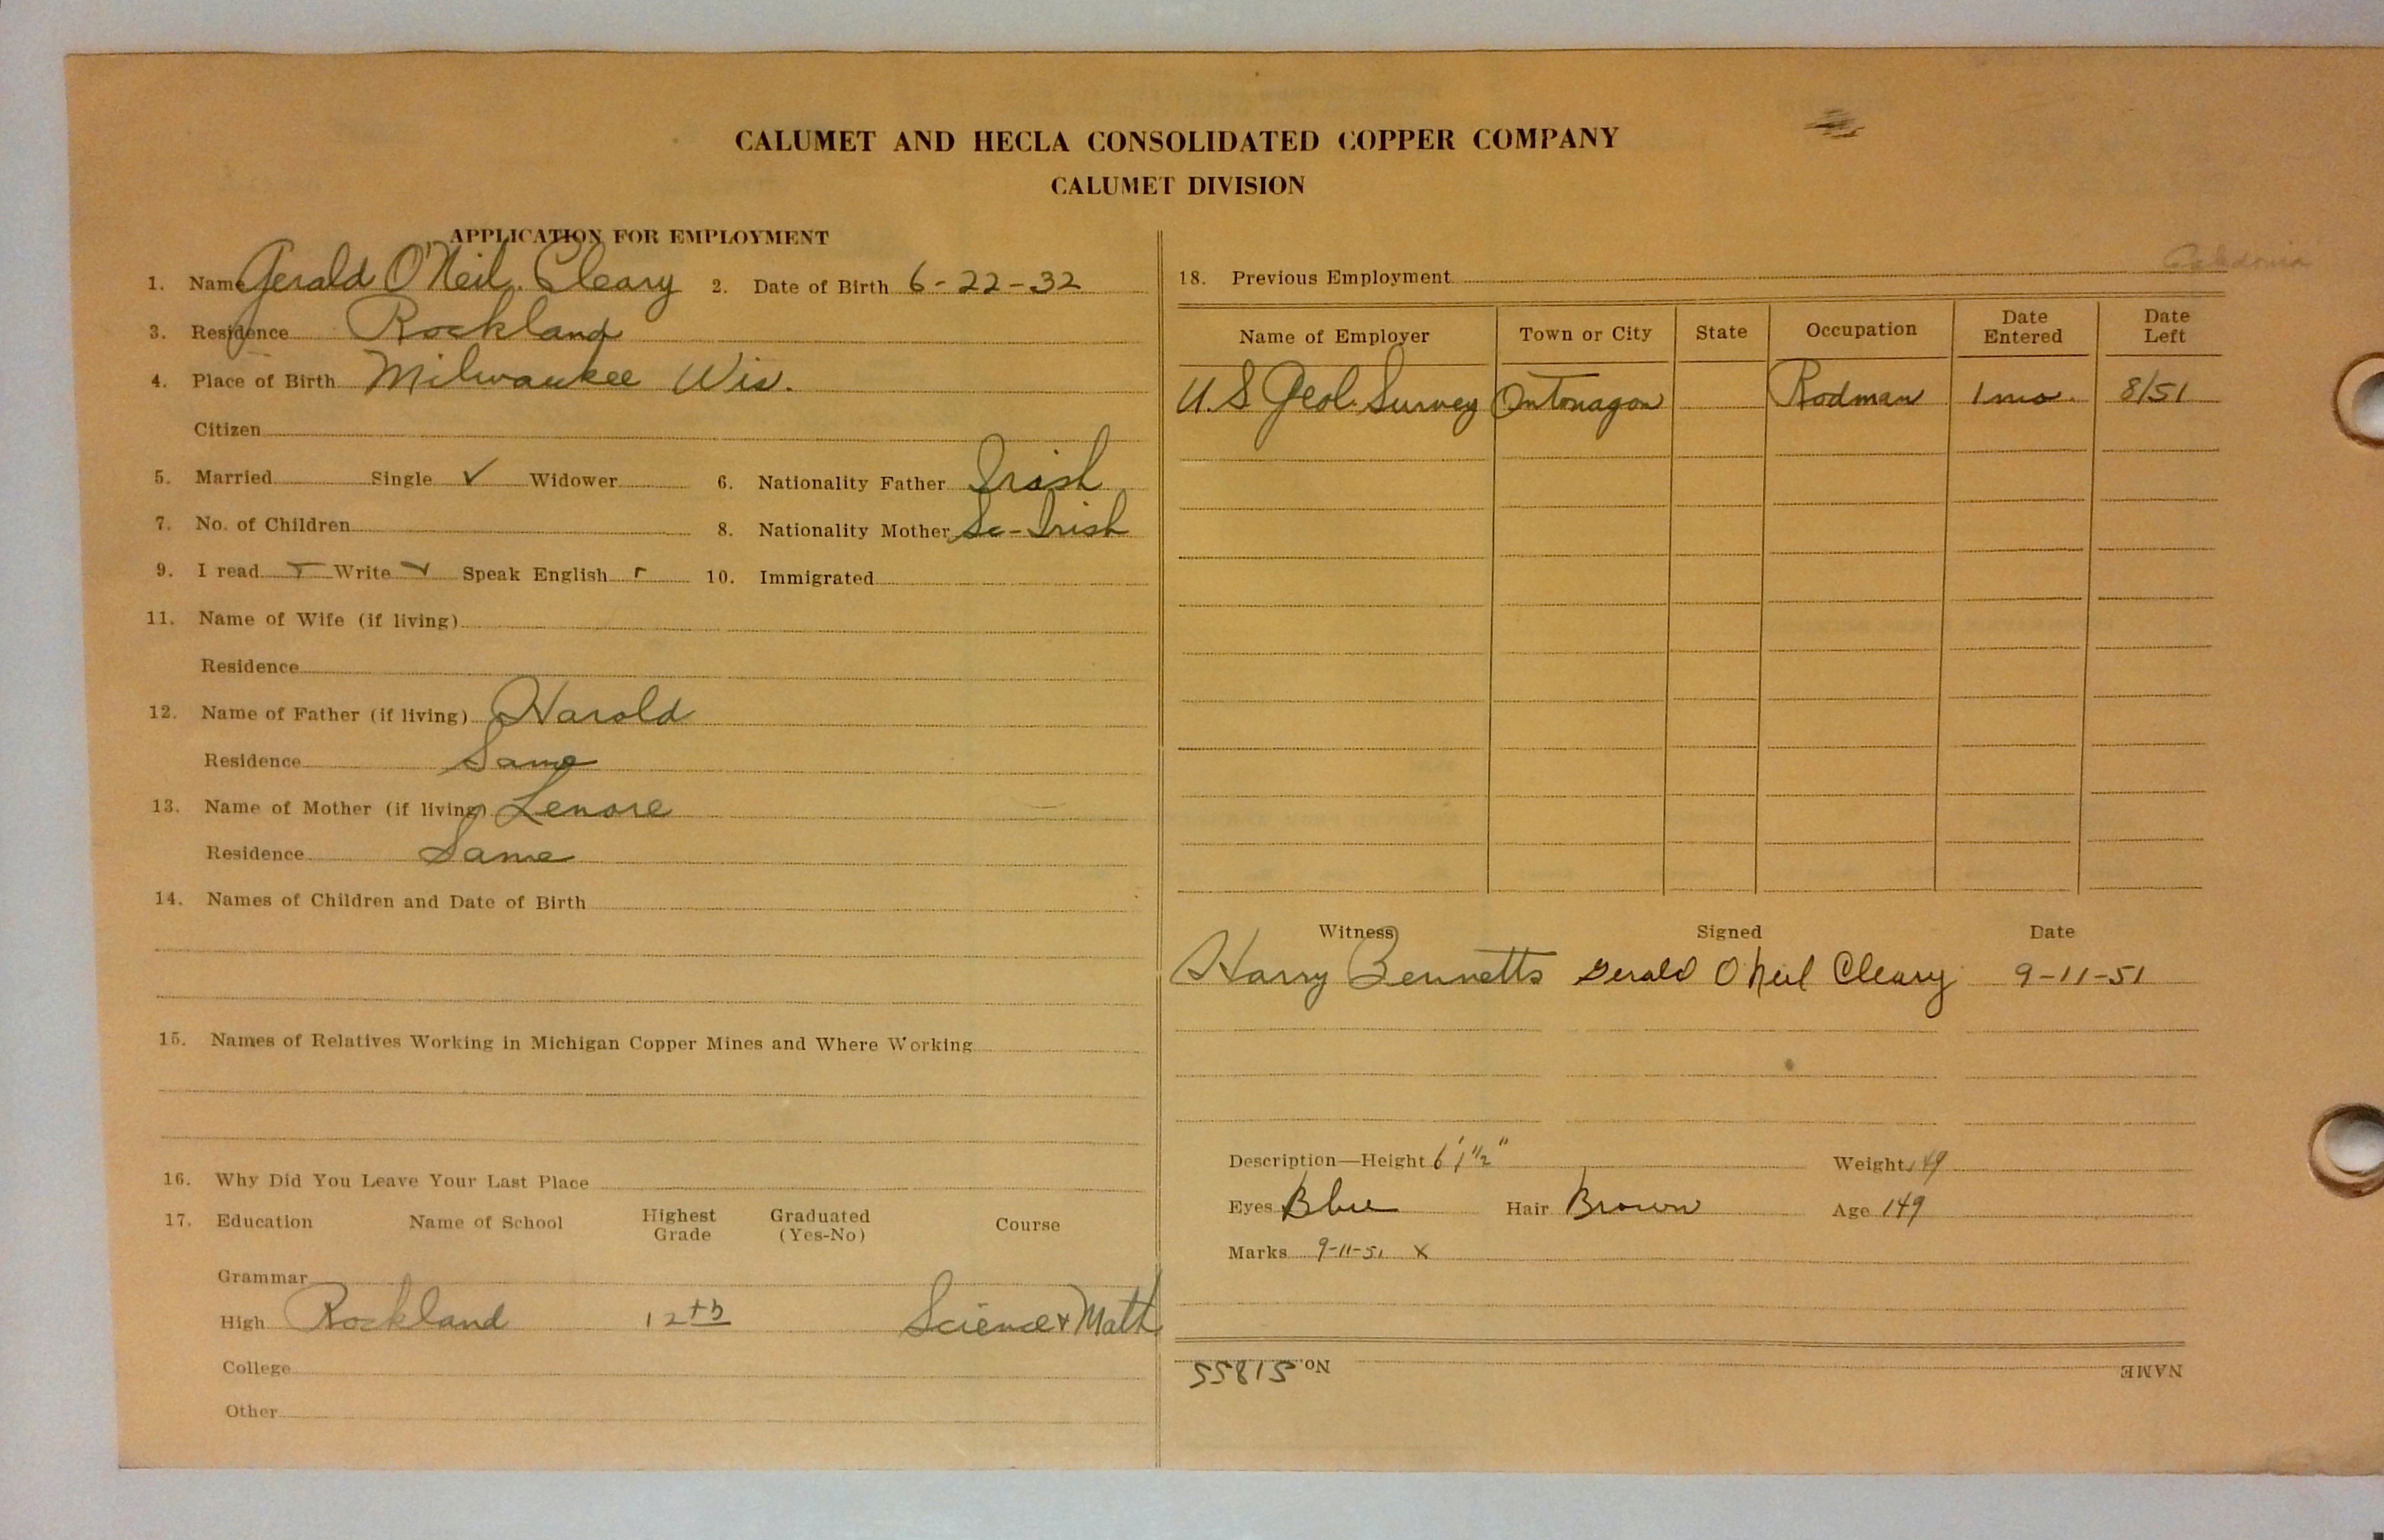 CALUMET AND HECLA CONSOLIDATED COPPER COMPANY
CALUMET DIVISION
APPLICATION FOR EMPLOYMENT
1. Name Gerald O'Neil Cleary 2. Date of Birth 6-22-32
3. Residence Rockland
4. Place of Birth Milwaukee Wis.
Citizen
5. Married Single ✓ Widower 6. Nationality Father Irish
7. No. of Children 8. Nationality Mother Sc-Irish
9. I read ✓ Write ✓ Speak English ✓ 10. Immigrated
11. Name of Wife (if living)
Residence
12. Name of Father (if living) Harold
Residence Same
13. Name of Mother (if living) Lenore
Residence Same
14. Names of Children and Date of Birth
15. Names of Relatives Working in Michigan Copper Mines and Where Working
16. Why Did You Leave Your Last Place
17. Education Name of School Highest Grade Graduated (Yes-No) Course
Grammar
High Rockland 12th Science & Math
College
Other
Caledonia
18. Previous Employment
Name of Employer Town or City State Occupation Date Entered Date Left
U.S. Geol. Survey Ontonagon Rodman 1 mo. 8/51
Witness Signed Date
Harry Bennetts Gerald O'Neil Cleary 9-11-51
Description—Height 6' 1 1/2" Weight 149
Eyes Blue Hair Brown Age 149
Marks 9-11-51 X
No. 51855 NAME